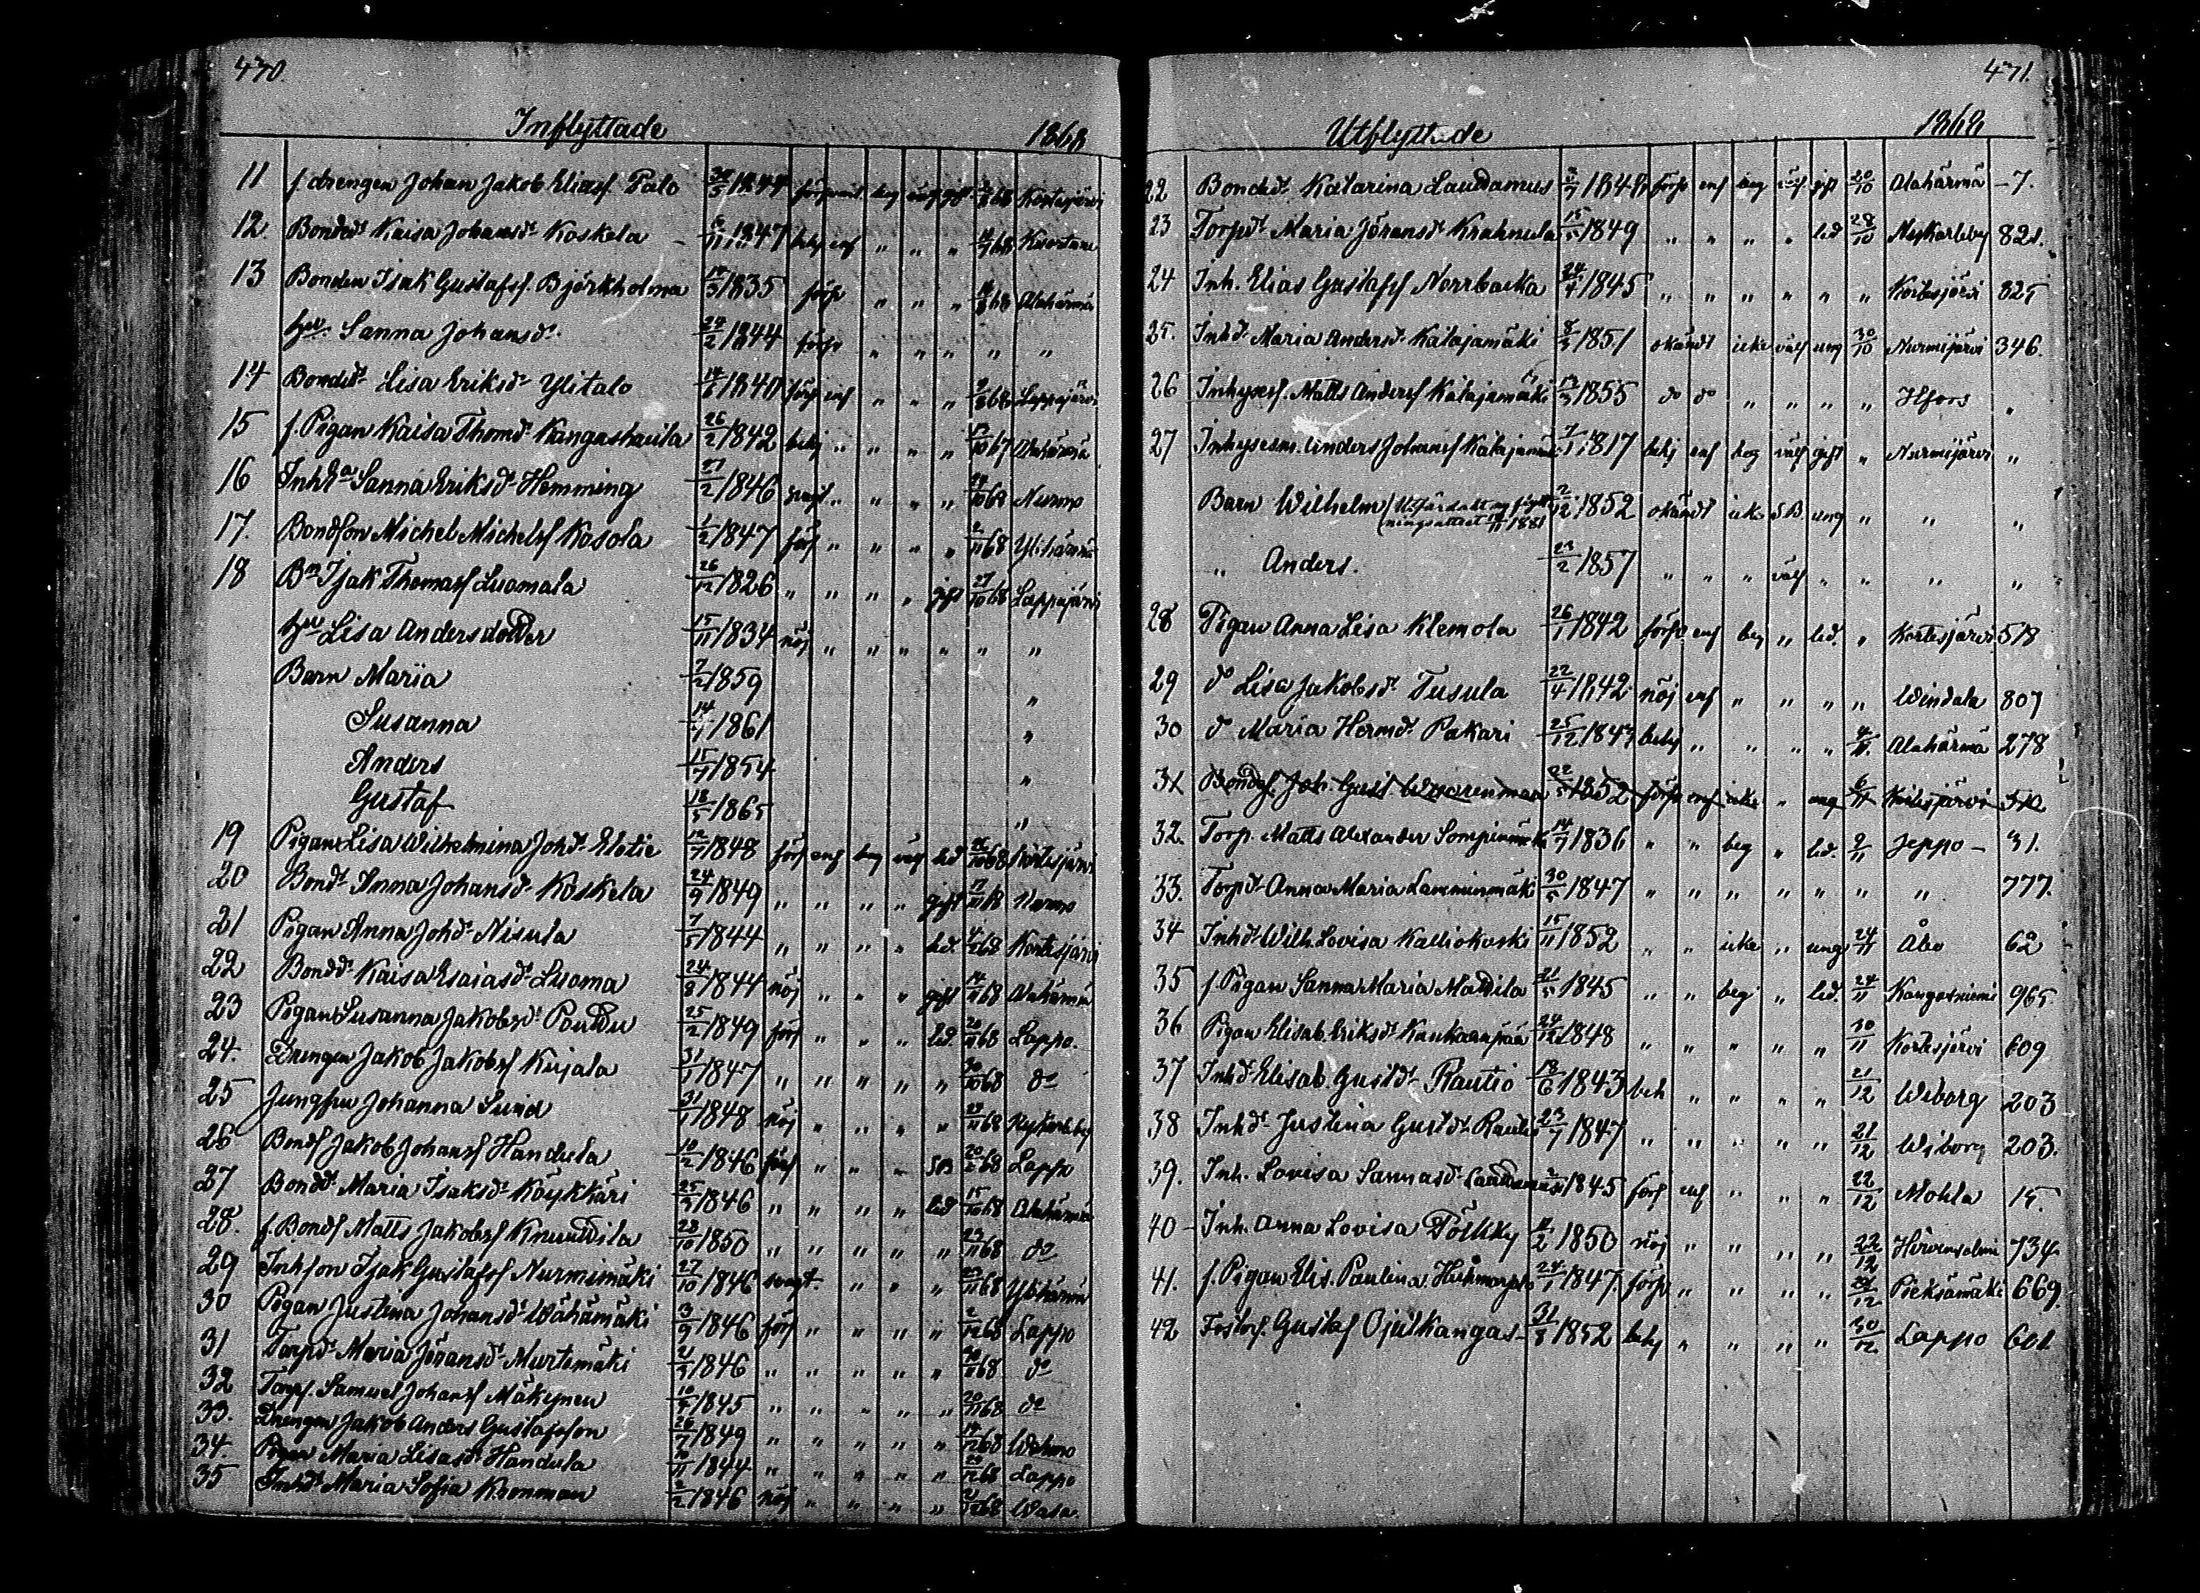 470.
Inflyttade 1868
11 f. drengen Johan Jakob Eliass. Palo 1844 gift 68 Kortesjärvi
12. Bondedr Kaisa Johansdr Koskela 1847 behj enf " " " 68 Kuortane
13 Bonden Isak Gustafss. Björkholma 1835 förs " " " 68 Alahärmä
hu. Sanna Johansdr. 24/2 1844 förs " " " " "
14 Bondedr Lisa Eriksdr Ylitalo 1840 förs enf " " " 68 Lappajärvi
15 f. Pigan Kaisa Thomdr Kangashaula 26/2 1842 behj " " " " 67 Alahärmä
16 Inhda Sanna Eriksdr Hemming 27/2 1846 " " " " 68 Nurmo
17. Bondson Michel Michelss Kosola 1/2 1847 förs " " " " 68 Ylihärmä
18 Bn Isak Thomass Luomala 26/12 1826 " " " " gift 27/10 68 Lappajärvi
hu Lisa Andersdotter 15/11 1834 nöj " " " " " "
Barn Maria 7/2 1859 "
Susanna 14/1 1861 "
Anders 15/7 1854 "
Gustaf 18/5 1865 "
19 Pigan Lisa Wilhelmina Johdr Elotie 12/7 1848 förs enf beg väl led. 68 Kortesjärvi
20 Bondr Anna Johansdr Koskela 24/9 1849 " " " " gift 68 Nurmo
21 Pigan Anna Johdr Nisula 7/5 1844 " " " " led. 68 Kortesjärvi
22 Bonddr Kaisa Esaiasdr Luoma 24/8 1844 nöj " " " gift 14/11 68 Alahärmä
23 Pigan Susanna Jakobsdr Pouttu 25/2 1849 förs " " " led. 20/11 68 Lappo.
24. Drengen Jakob Jakobss Kujala 31/1 1847 " " " " " 30/10 68 do
25 Jungfru Johanna Sund 31/1 1848 nöj " " " " 68 Nykarleby
26 Bonds Jakob Johanss Handula 10/2 1846 förs " " " SB 20/2 68 Lappo
27 Bonddr Maria Isaksdr Köykkäri 25/3 1846 " " " " led 15/10 68 Alahärmä
28. f. Bonds Matts Jakobss Knuuttila 28/10 1850 " " " " " 68 do
29 Inhson Isak Gustafss Nurmimäki 27/10 1846 svagt. " " " " 68 Ylihärmä
30 Pigan Justina Johansdr Wähämäki 13/9 1846 förs " " " " 2/12 68 Lappo
31 Torpdr Maria Jöransdr Murtomäki 1846 " " " " " 68 do
32 Torps. Samuel Johanss Mäkynen 1845 " " " " " 20/11 68 do
33. Drengen Jakob Anders Gustafsson 26/7 1849 " " " " " 68 Wehmo
34 Pigan Maria Lisasdr Handula 1844 " " " " " 68 Lappo
35 Inhdr Maria Sofia Kronman 2/2 1846 nöj " " " " 68 Wasa
471.
Utflyttade 1868
22 Bondedr. Katarina Laudamus 1848 förs enf beg väl gift 20/10 Alahärmä – 7.
23 Torpdr Maria Jöransdr Krahnula 15/5 1849 " " " " led 28/10 Nykarleby 821.
24 Inh. Elias Gustafss Norrbacka 24/4 1845 " " " " " " Kortesjärvi 825
25. Inhdr Maria Andersdr Katajamäki 8/3 1851 okändt icke väl ung 30/10 Nurmijärvi 346.
26 Inhyses. Matts Anderss Katajamäki 1855 do do " " " " Hfors "
27 Inhysesm. Anders Johanss Katajamäki 7/1 1817 behj enf beg väl gift " Nurmijärvi "
Barn Wilhelm (Utfärdatt ny flyttningsattest 1881 2/12 1852 okändt icke S.B. ung " " "
" Anders. 23/2 1857 " " " väl " " " "
28 Pigan Anna Lisa Klemola 26/1 1842 förs enf beg " led. " Kortesjärvi 518
29 do Lisa Jakobsdr Tusula 22/4 1842 nöj enf " " " " Windala 807
30 do Maria Hermdr Pakari 25/12 1847 behj " " " " 4/11 Alahärmä 278
31 Bondes. Joh. Gust Wuorenmaa 22/5 1852 förs enf icke " ung 6/11 Kortesjärvi 510
32. Torp. Matts Alexander Sompinmäki 14/7 1836 " " beg " led. 9/11 Jeppo – 31.
33. Torpdr Anna Maria Lamminmäki 30/5 1847 " " " " " " " 777.
34 Inhdr Wilh. Lovisa Kalliokoski 15/11 1852 " " icke " ung 24/11 Åbo 62
35 f. Pigan Sanna Maria Mattila 21/5 1845 " " beg " led. 24/11 Kangasniemi 965
36 Pigan Elisab. Eriksdr Kankaanpää 24/12 1848 " " " " " 30/11 Kortesjärvi 609
37 Inhdr Elisab. Gustdr Rautio 18/6 1843 beh " " " " 21/12 Wiborg 203
38 Inhdr Justina Gustdr Rautio 23/7 1847 " " " " " 21/12 Wiborg 203.
39. Inh. Lovisa Sannasdr Laudamus 1845 förs enf " " " 22/12 Mohla 15.
40 Inh. Anna Lovisa 1850 nöj " " " " 22/12 Hirvensalmi 734
41. f. Pigan Elis. Paulina 24/1 1847. förs " " " " 12 Pieksämäki 669.
42 Fosters. Gustaf Ojutkangas 31/8 1852 behj " " " " 30/12 Lappo 601